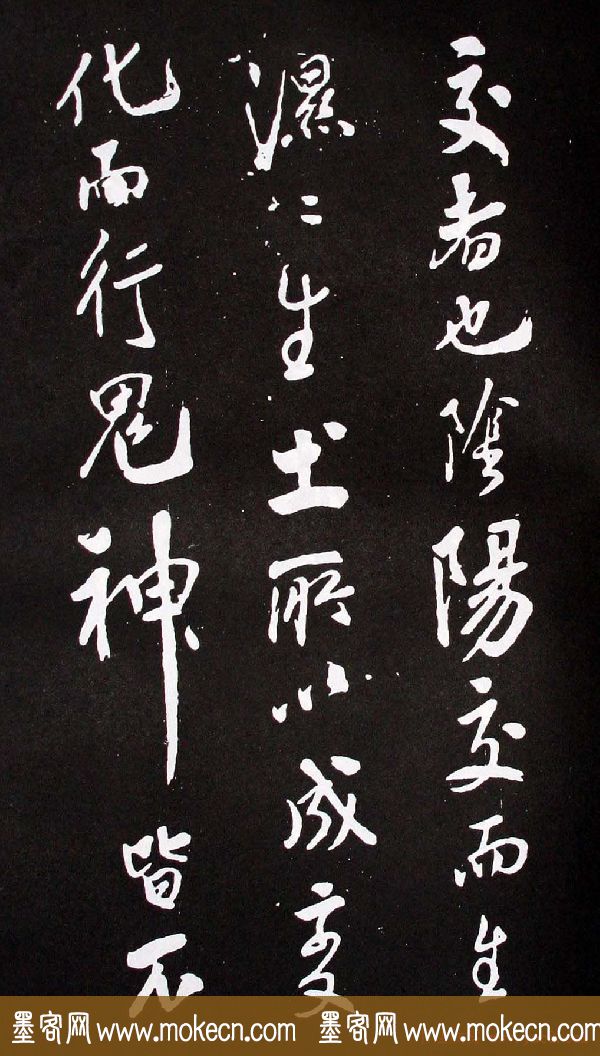 交者也陰陽交而生
濕〻生土所以成变
化而行鬼神皆不
墨客网 www.mokecn.com 墨客网 www.mokecn.com